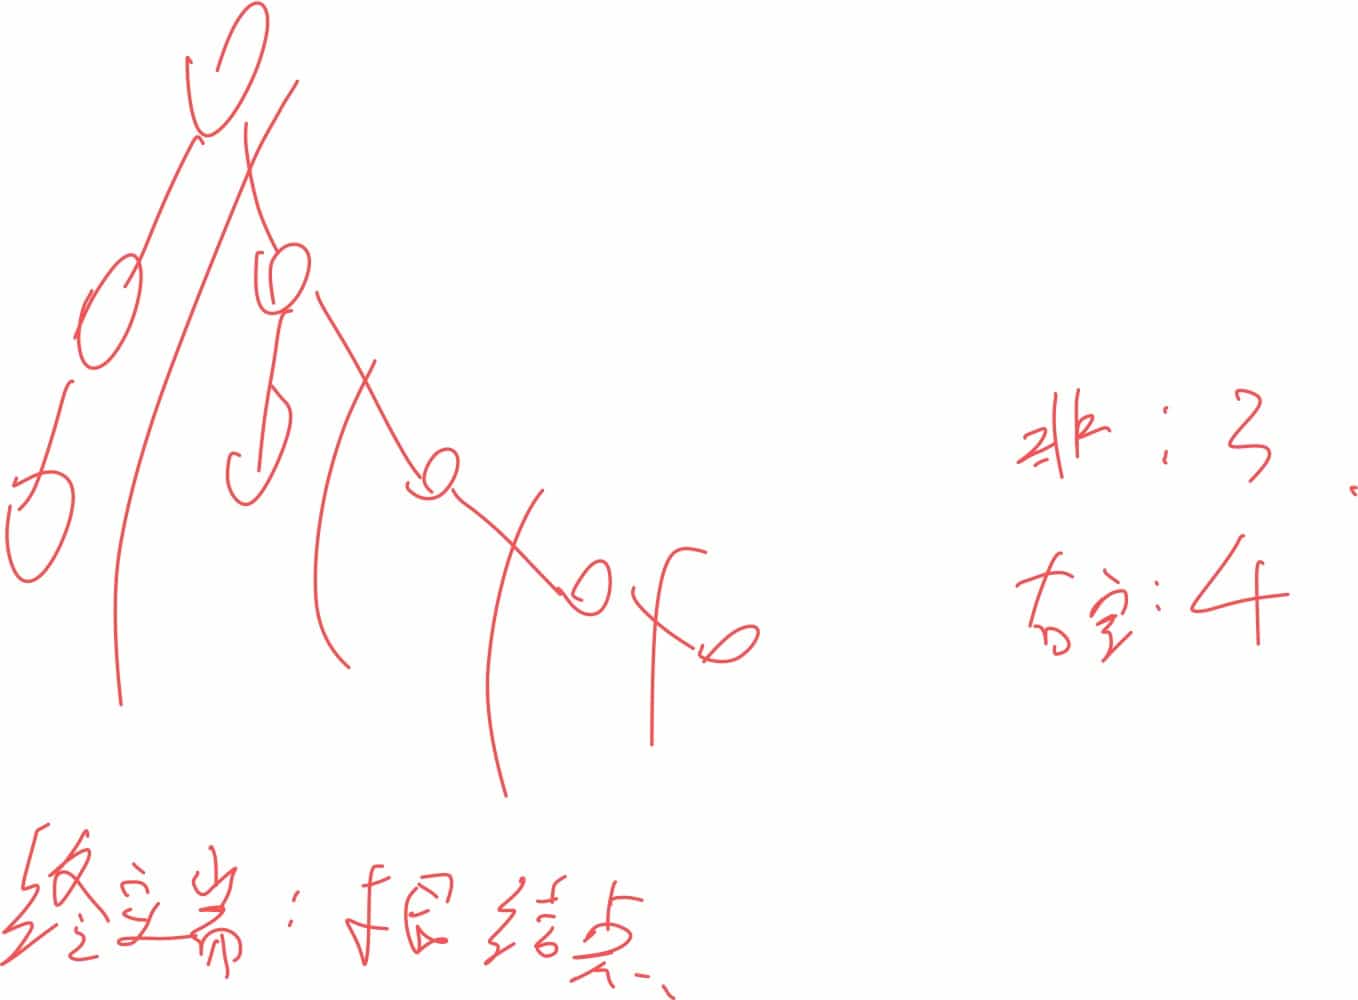 非:3.
右空:4
终端:根结点、